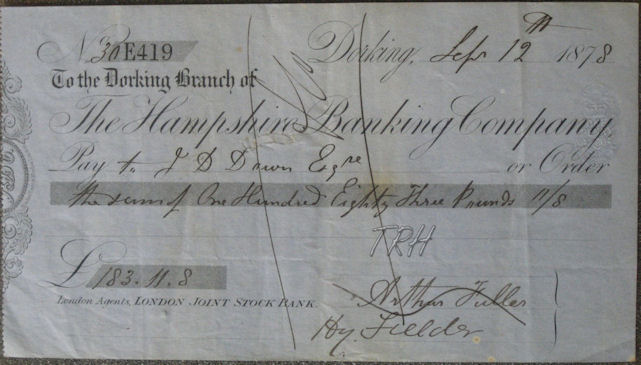 No 30 E419 Dorking, Sep 12th 1878
To the Dorking Branch of
The Hampshire Banking Company
Pay to J D Down Esqre or Order
the sum of One Hundred Eighty Three Pounds 11/8
TRH
£ 183.11.8
Arthur Fuller
London Agents, LONDON JOINT STOCK BANK.
Hy. Fielder